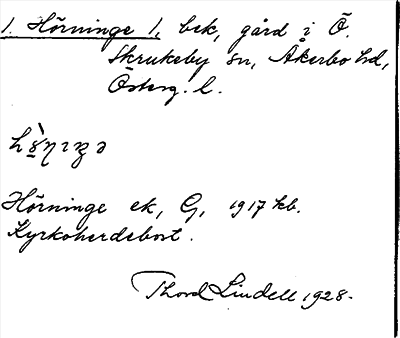 1. Hörninge 1, bek, gård i Ö.
Skrukeby sn, Åkerbo hd,
Österg. l.
Hörninge ek, G, 1917 kb.
Kyrkoherdebost.
Thord Lindell 1928.